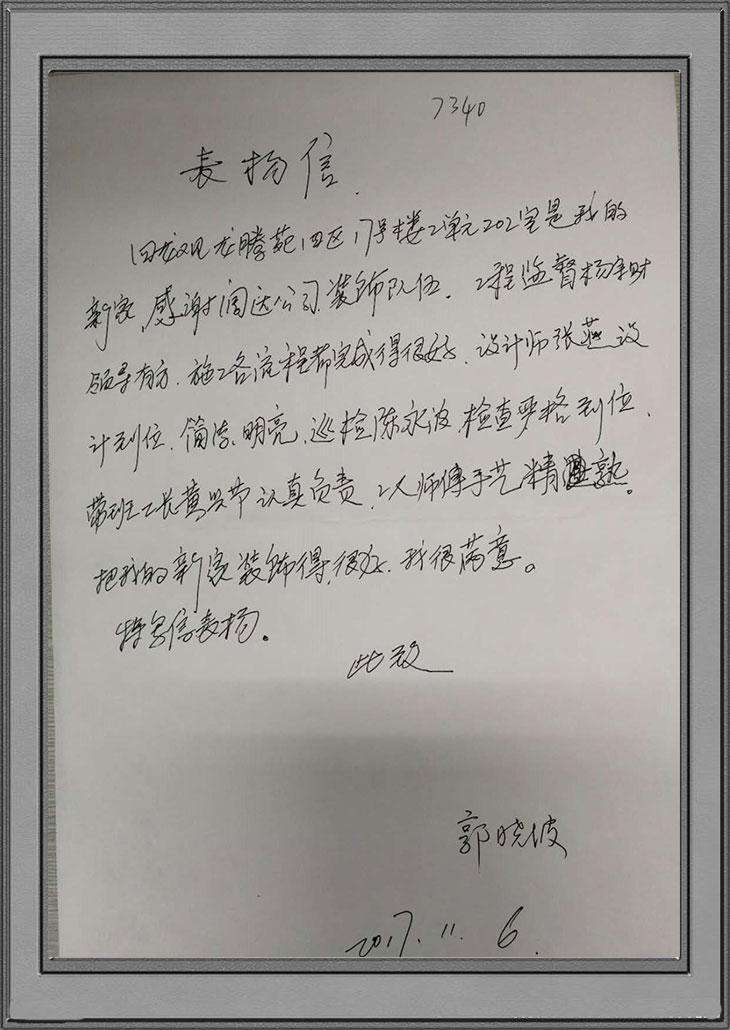 7340
表扬信
回龙观龙腾苑四区17号楼2单元202室是我的
新家,感谢阔达公司装饰队伍.工程监督杨财
领导有方.施工各流程都完成得很好.设计师张燕设
计到位.简洁.明亮.巡检陈永波.检查严格到位.
带班工长黄兴节认真负责.工人师傅手艺精熟。
把我的新家装饰得很好.我很满意。
特写信表扬。
此致
郭晓坡
2017.11.6.